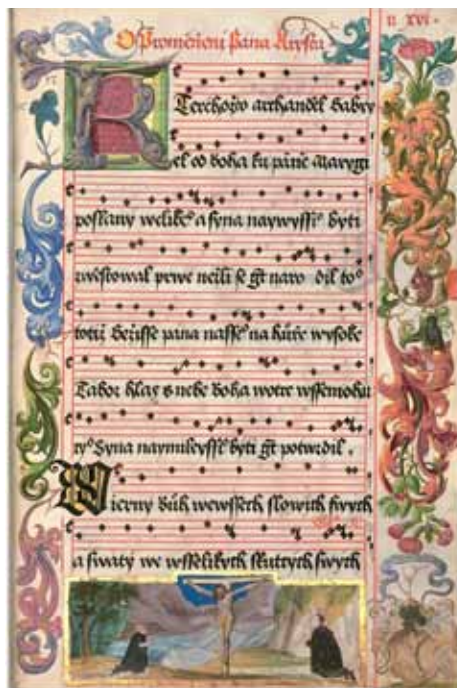 O Promeneni Pana Krysta
II XVI.
Kterehožto archanděl Gabry
el od boha ku panně Marygi
poslany welikeº a syna naywyssiº byti
zwěstowal prwe nežli se gt naro dil toº
totiž Gežisse pana nasseº na huře wysoke
Tabor hlas s nebe boha wotce wssemohu
ryº Syna naymileyssiº byti gt potwrdil.
Wierny buh wewssech slowich swych
a swaty we wsselikych skuttych swych